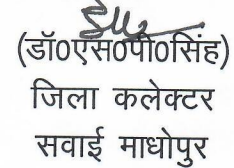 (डॉ0एस0पी0सिंह)
जिला कलेक्टर
सवाई माधोपुर